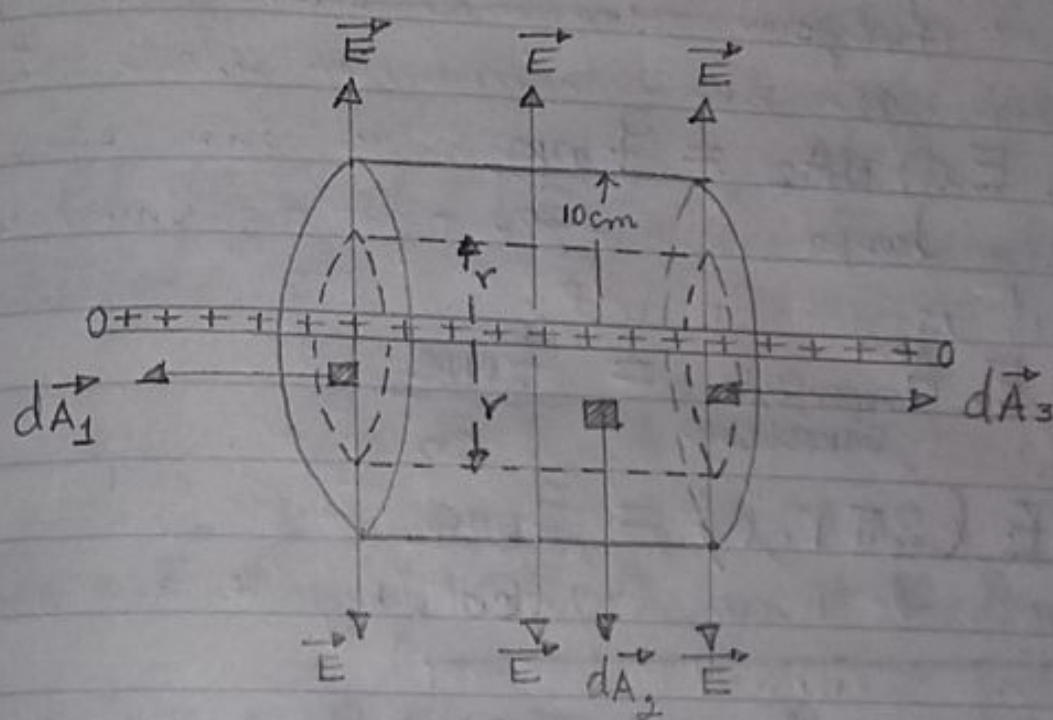 E E E
10cm
r
0 + + + + + + + + + + + + + + + + + 0
dA₁ r dA₃
E E dA₂ E